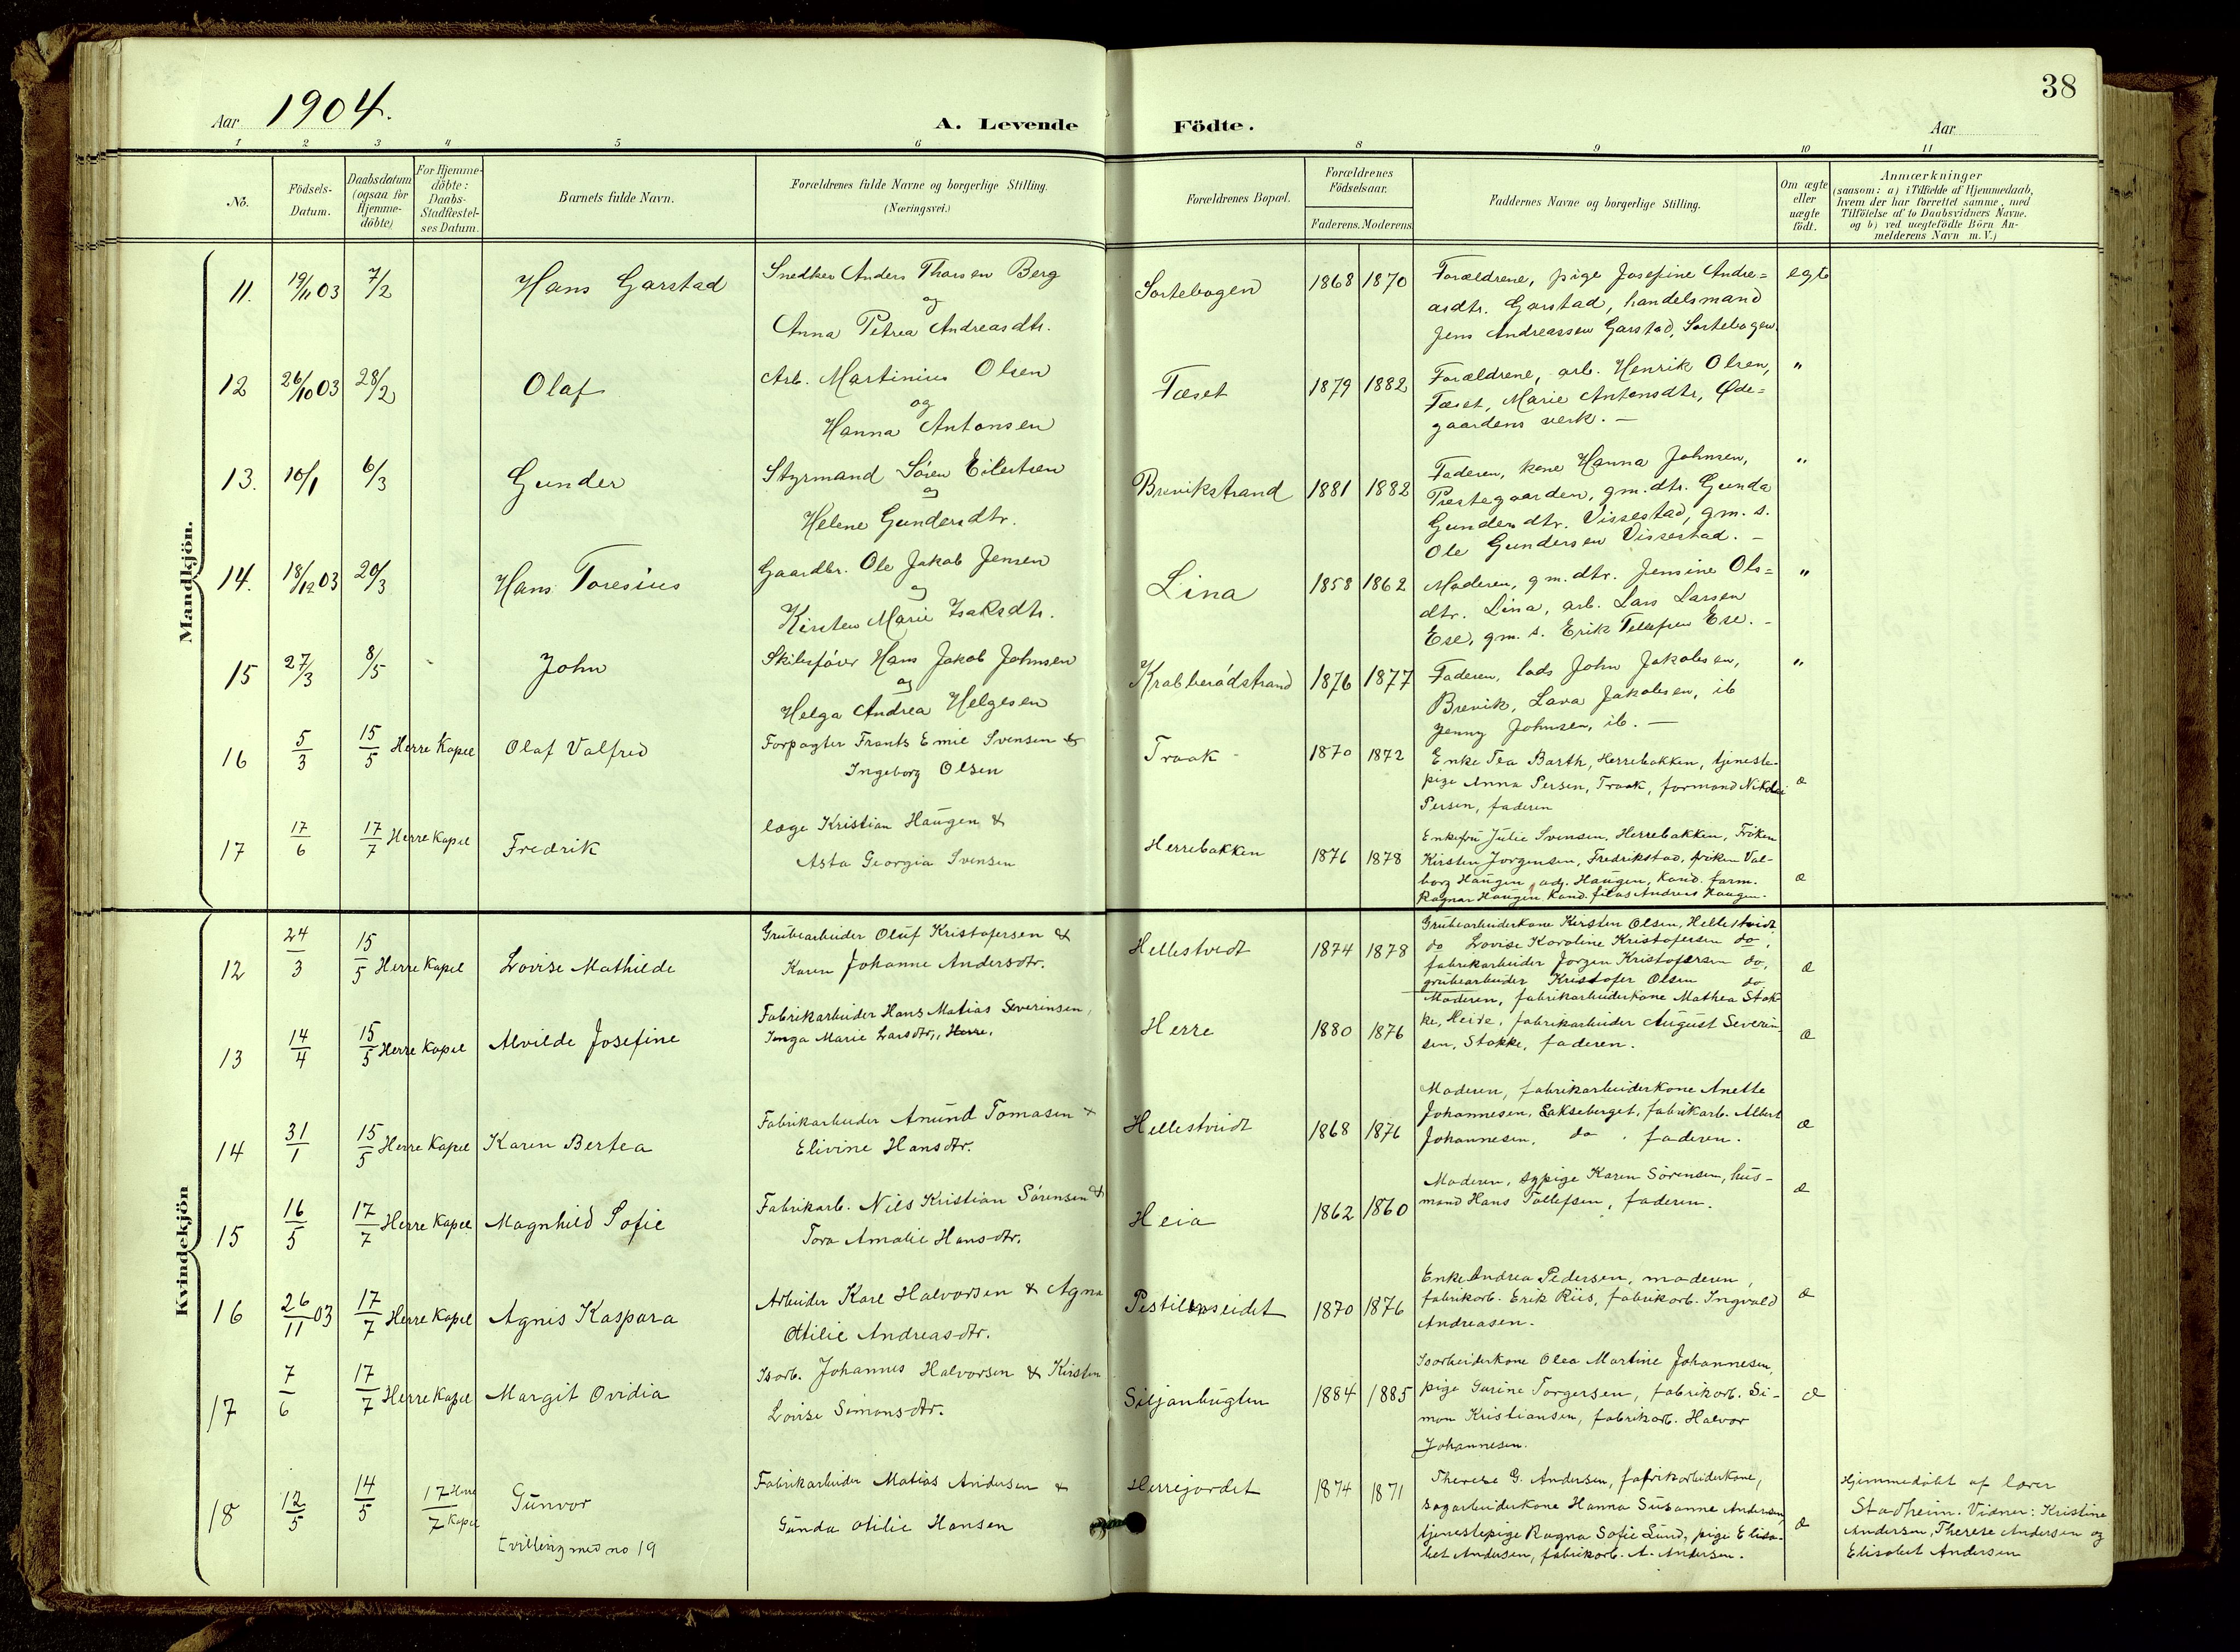 Aar 1904.
A. Levende Födte.
Aar
38
1 2 3 4 5 6 8 9 10 11
No.
Födsels-Datum.
Daabsdatum (ogsaa for Hjemme-döbte)
For Hjemme-döbte: Daabs-Stadfæstel-ses Datum.
Barnets fulde Navn.
Forældrenes fulde Navne og borgerlige Stilling.
(Næringsvei.)
Forældrenes Bopæl.
Forældrenes Födselsaar.
Faderens. Moderens.
Faddernes Navne og borgerlige Stilling.
Om ægte eller uægte födt.
Anmærkninger
(saasom: a) i Tilfælde af Hjemmedaab,
hvem der har forrettet samme, med
Tilföielse af to Daabsvidners Navne.
og b) ved uægtefödte Börn An-
melderens Navn m. V.)
Mandkjön.
11. 19/11 03 7/2 Hans Garstad
Snedker Anders Thorsen Berg
og
Anna Petrea Andreasdtr.
Sortebogen 1868 1870
Forældrene, pige Josefine Andre=
asdtr. Garstad, handelsmand
Jens Andreassen Garstad, Sortebogen.
egte
12 26/10 03 28/2 Olaf
Arb. Martinius Olsen
og
Hanna Antonsen
Fæset 1879 1882
Forældrene, arb. Henrik Olsen,
Fæset, Marie Antonsdtr, Øde=
gaardens verk. —
"
13. 10/1 6/3 Gunder
Styrmand Sören Eilertsen
og
Helene Gundersdtr.
Brevikstrand 1881 1882
Faderen, kone Hanna Johnsen,
Prestegaarden, gm. dtr. Gunda
Gundersdtr. Vissestad, gm. s.
Ole Gundersen Vissestad. —
"
14. 18/12 03 20/3 Hans Toresius
Gaardbr. Ole Jakob Jensen
og
Kirsten Marie Isaksdtr.
Lina 1858 1862
Moderen, gm. dtr. Jensine Ols=
dtr. Lina, arb. Lars Larsen
Ese, gm. s. Erik Tellefsen Ese. —
"
15 27/3 8/5 John
Skibsförer Hans Jakob Johnsen
og
Helga Andrea Helgesen
Krabberödstrand 1876 1877
Faderen, lods John Jakobsen,
Brevik, Lava Jakobsen, ib
Jenny Johnsen, ib. —
"
16 5/3 15/5 Herre Kapel Olaf Valfred
Forpagter Frants Emil Svensen &
Ingeborg Olsen
Traak 1870 1872
Enke Tea Barth, Herrebakken, tjeneste-
pige Anna Persen, Traak, formand Nikolai
Persen, faderen
æ
17 17/6 17/7 Herre Kapel Fredrik
læge Kristian Haugen &
Asta Georgia Svensen
Herrebakken 1876 1878
Enkefru Julie Svensen, Herrebakken, Fröken
Kirsten Jorgensen, Fredrikstad, fröken Val-
borg Haugen, adj. Haugen, Kand. farm.
Ragnar Haugen, Kand. filos Andreas Haugen.
æ
Kvindekjön
12 24/3 15/5 Herre Kapel Lovise Mathilde
Grubearbeider Oluf Kristofersen &
Karen Johanne Andersdtr.
Hellestvedt 1874 1878
Grubearbeiderkone Kirsten Olsen, Hellestvedt
do Lovise Karoline Kristofersen do,
fabrikarbeider Jorgen Kristofersen do,
grubearbeider Kristofer Olsen do
æ
13 14/4 15/5 Herre Kapel Alvilde Josefine
Fabrikarbeider Hans Matias Severinsen,
Inga Marie Larsdtr, Herre.
Herre 1880 1876
Moderen, fabrikarbeiderkone Mathea Stok-
ke, Heide, fabrikarbeider August Severin-
sen, Stokke, faderen.
æ
14 31/1 15/5 Herre Kapel Karen Bertea
Fabrikarbeider Anund Tomasen &
Elivine Hansdtr.
Hellestvedt 1868 1876
Moderen, fabrikarbeiderkone Anette
Johannesen, Lakseberget, fabrikarb. Albert
Johannesen, do. faderen.
æ
15 16/5 17/7 Herre Kapel Magnhild Sofie
Fabrikarb. Nils Kristian Sörensen &
Tora Amalie Hansdtr.
Heia 1862 1860
Moderen, sypige Karen Sörensen, hus-
mand Hans Tollefsen, faderen.
æ
16 26/11 03 17/7 Herre Kapel Agnis Kaspara
Arbeider Karl Halvorsen & Agna
Otilie Andreasdtr.
Pestilenseidet 1870 1876
Enke Andrea Pedersen, moderen,
fabrikarb. Erik Riis, fabrikarb. Ingvald
Andreasen.
æ
17 7/6 17/7 Herre Kapel Margit Ovidia
Isarb. Johannes Halvorsen & Kirsten
Lovise Simonsdtr.
Siljanbugten 1884 1885
Isarbeiderkone Olea Martine Johannesen,
pige Gurine Torgersen, fabrikarb. Si-
mon Kristiansen, fabrikarb. Halvor
Johannesen.
æ
18 12/5 14/5 17/7 Herre Kapel Gunvor
tvilling med no 19
Fabrikarbeider Matias Andersen &
Gunda Otilie Hansen
Herrejordet 1874 1871
Therese G. Andersen, fabrikarbeiderkone,
sagarbeiderkone Hanna Susanne Andersen,
tjenestepige Ragna Sofie Lund, pige Elisa-
bet Andersen, fabrikarb. A. Andersen.
æ
Hjemmedöbt af lærer
Stadheim. Vidner: Kristine
Andersen, Therese Andersen og
Elisabet Andersen